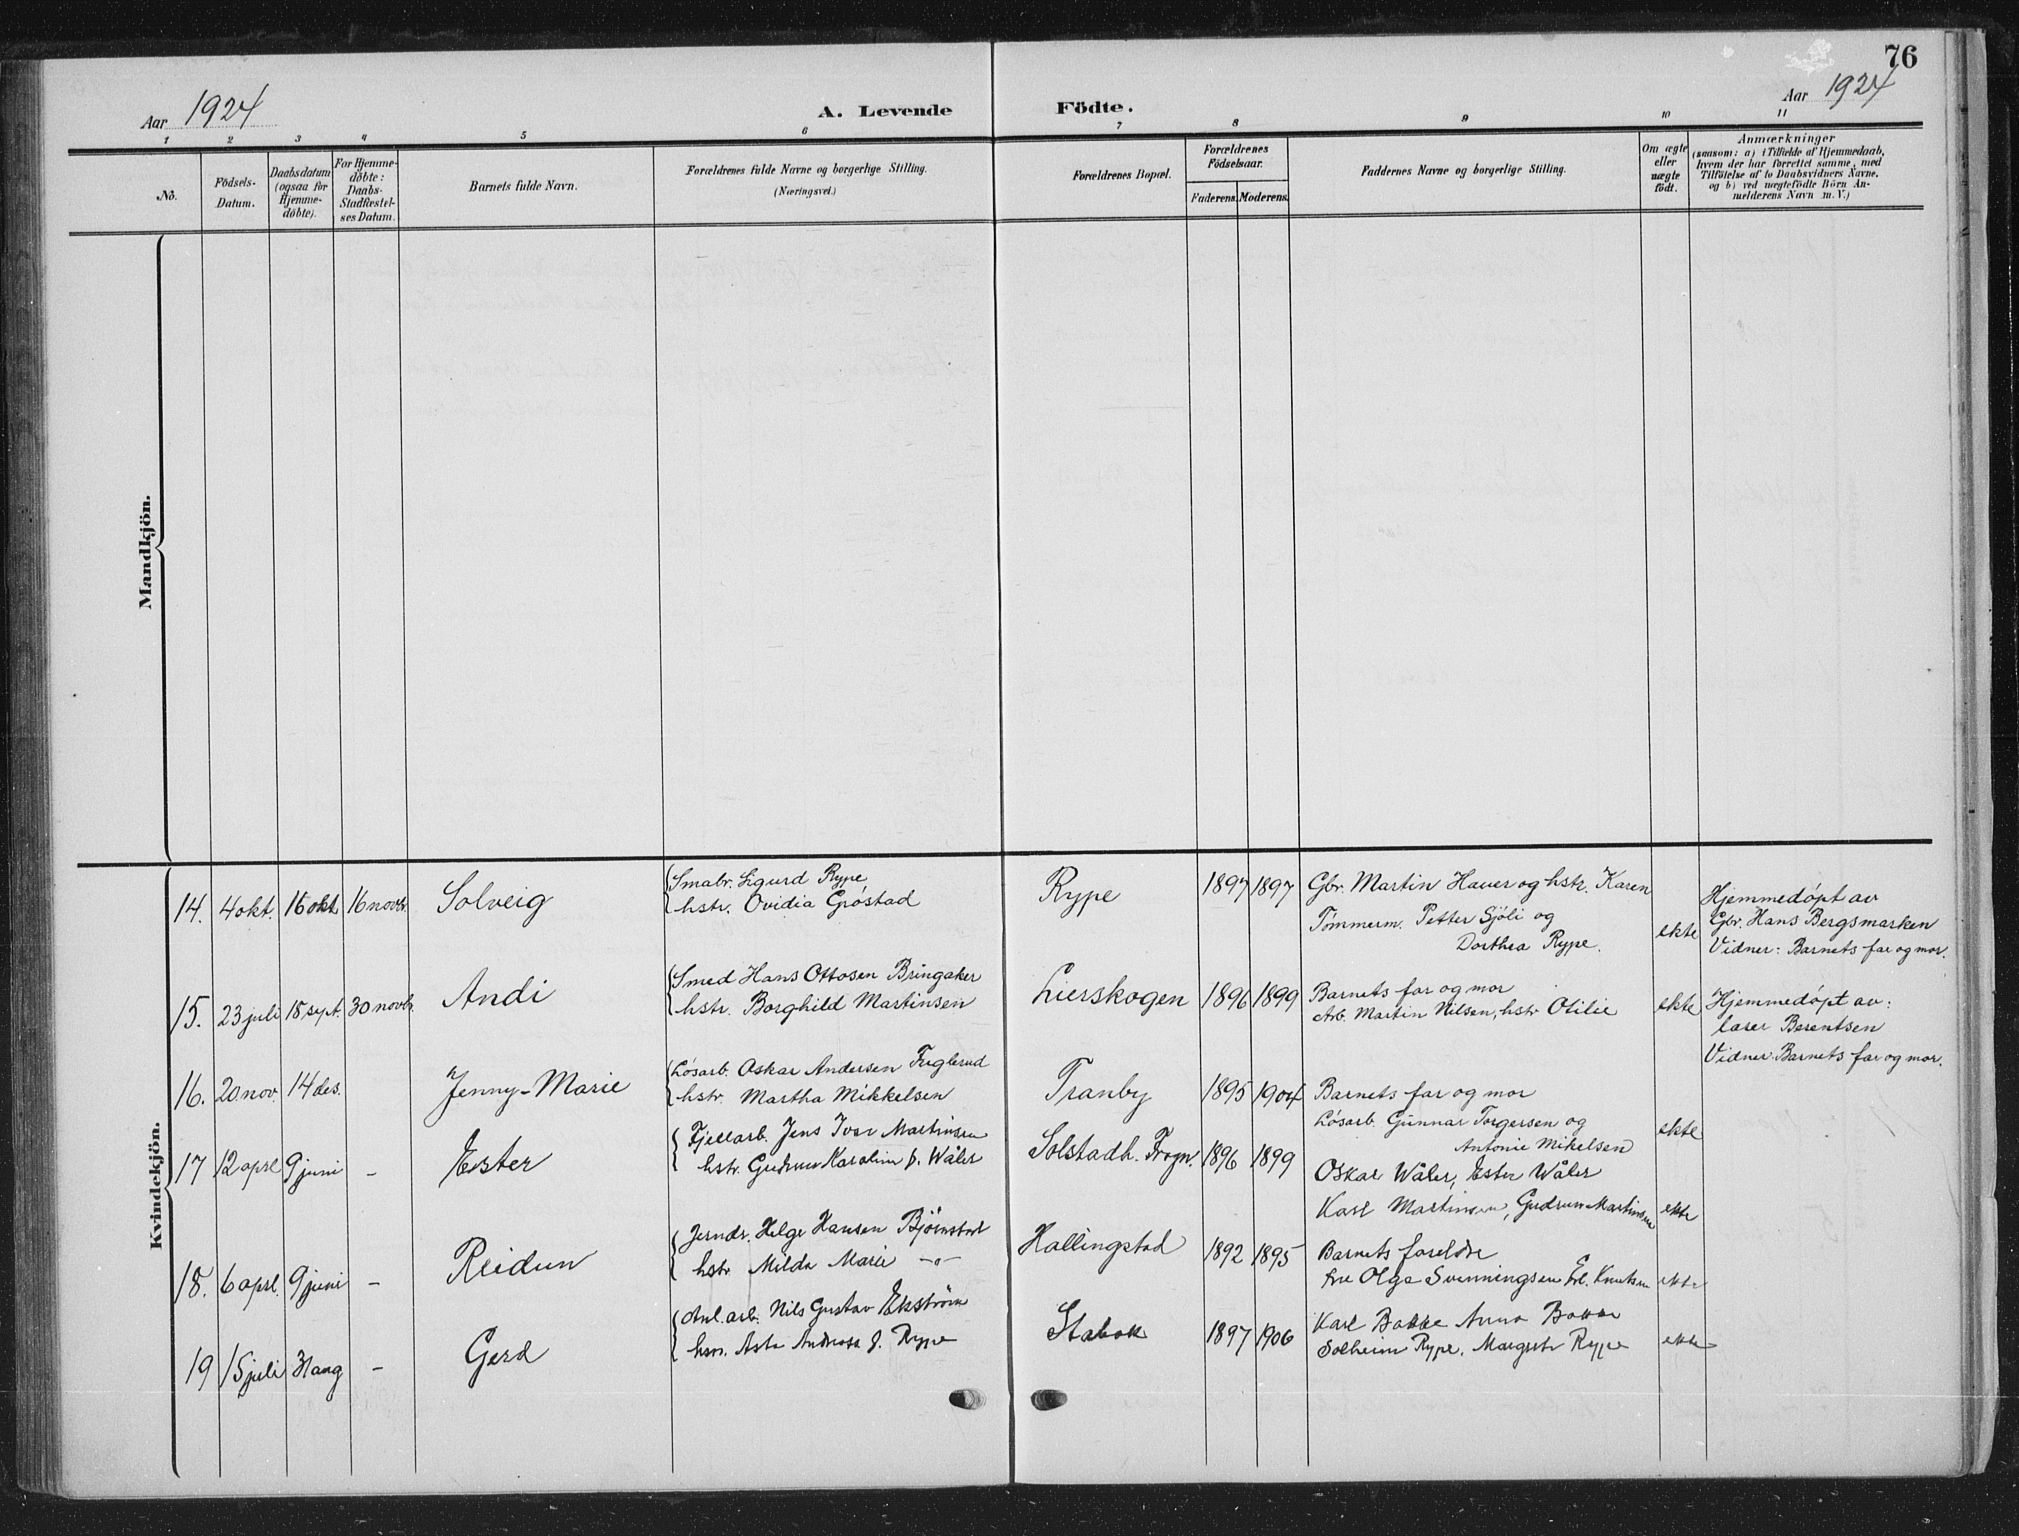 76
Aar 1924
A. Levende Födte.
Aar 1924
1 2 3 4 5 6 7 8 9 10 11
No.
Födsels-
Datum.
Daabsdatum
(ogsaa for
Hjemme-
döbte).
For Hjemme-
döbte:
Daabs-
Stadfæstel-
ses Datum.
Barnets fulde Navn.
Forældrenes fulde Navne og borgerlige Stilling.
(Næringsvei.)
Forældrenes Bopæl.
Forældrenes
Födselsaar.
Faderens. Moderens.
Faddernes Navne og borgerlige Stilling.
Om ægte
eller
uægte
født.
Anmærkninger
(saasom: a) i Tilfælde af Hjemmedaab,
hvem der har forrettet samme, med
Tilføielse af to Daabsvidners Navne,
og b) ved uægtefödte Börn An-
melderens Navn m. V.)
Mandkjön.
Kvindekjön.
14. 4 okt. 16 okt. 16 novbr. Solveig
Smabr. Sigurd Rype
hstr. Ovidia Grøstad
Rype 1897 1897
Gbr. Martin Hauer og hstr. Karen
Tømmerm. Petter Sjöli og
Dorthea Rype.
ekte
Hjemmedøpt av
Gbr. Hans Bergsmarken
Vidner: Barnets far og mor.
15. 23 juli 18 sept. 30 novbr. Andi
Smed Hans Ottosen Bringaker
hstr. Borghild Martinsen
Lierskogen 1896 1899
Barnets far og mor
Arb. Martin Nilsen, hstr. Otilie
ekte
Hjemmedøpt av:
lærer Berentsen
Vidner: Barnets far og mor.
16. 20 nov. 14 des. Jenny-Marie
Løsarb. Oskar Andersen Fuglerud
hstr. Martha Mikkelsen
Tranby 1895 1904
Barnets far og mor
Løsarb. Gunnar Torgersen og
Antonie Mikelsen
ekte
17 12 aprl 9 juni - Ester
Fjellarb. Jens Ivar Martinsen
hstr. Gudrun Karoline f. Wåler
Solstadh. Frogn. 1896 1899
Oskar Wåler, Ester Wåler
Karl Martinsen, Gudrun Martinsen
ekte
18. 6 aprl. 9 juni - Reidun
Jerndr. Helge Hansen Bjørnstad
hstr. Milda Marie -"-
Hallingstad 1892 1895
Barnets foreldre
fru Olga Svenningsen Frl. Knutsen
ekte
19 15 juli 31 aug - Gerd
Anl. arb. Nils Gustav Ekström
hsn. Asta Andrea f. Rype
Stabæk 1897 1906
Karl Bakke Anna Bakke
Solheim Rype. Margrete Rype
ekte